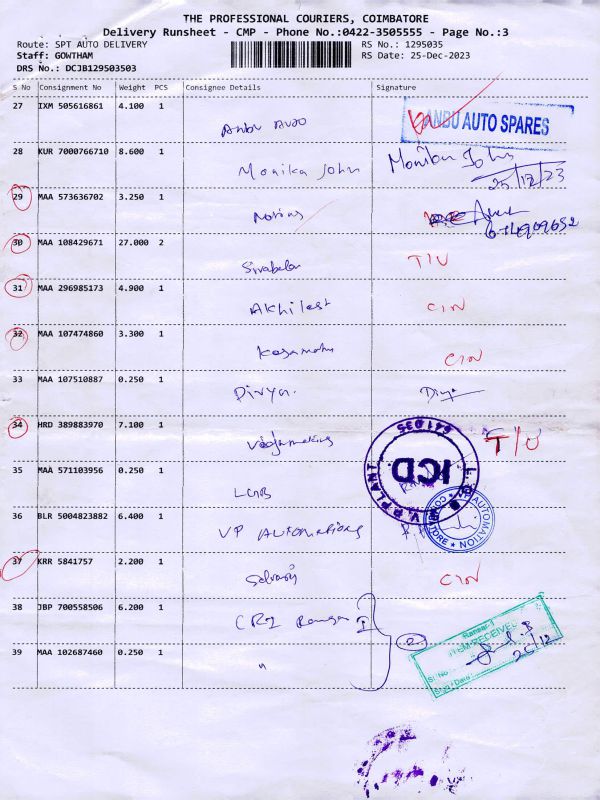 THE PROFESSIONAL COURIERS, COIMBATORE
Delivery Runsheet - CMP - Phone No.:0422-3505555 - Page No.:3
Route: SPT AUTO DELIVERY
RS No.: 1295035
Staff: GOWTHAM
RS Date: 25-Dec-2023
DRS No.: DCJB129503503
S No Consignment No Weight PCS Consignee Details Signature
27 IXM 505616861 4.100 1
Anbu Auto ANBU AUTO SPARES
28 KUR 7000766710 8.600 1
Monika John Monika John
25/12/23
29 MAA 573636702 3.250 1
30 MAA 108429671 27.000 2
T/U
31 MAA 296985173 4.900 1
Akhilesh
32 MAA 107474860 3.300 1
33 MAA 107510887 0.250 1
Divya. Divya
34 HRD 389883970 7.100 1
T/U
641035
ICD
V.P PLANT
35 MAA 571103956 0.250 1
LGB
AUTOMATION
36 BLR 5004823882 6.400 1
VP AUTOMATIONS
37 KRR 5841757 2.200 1
38 JBP 700558506 6.200 1
CRI
ITEM RECEIVED
39 MAA 102687460 0.250 1
"
Sl. No
Sign / Date